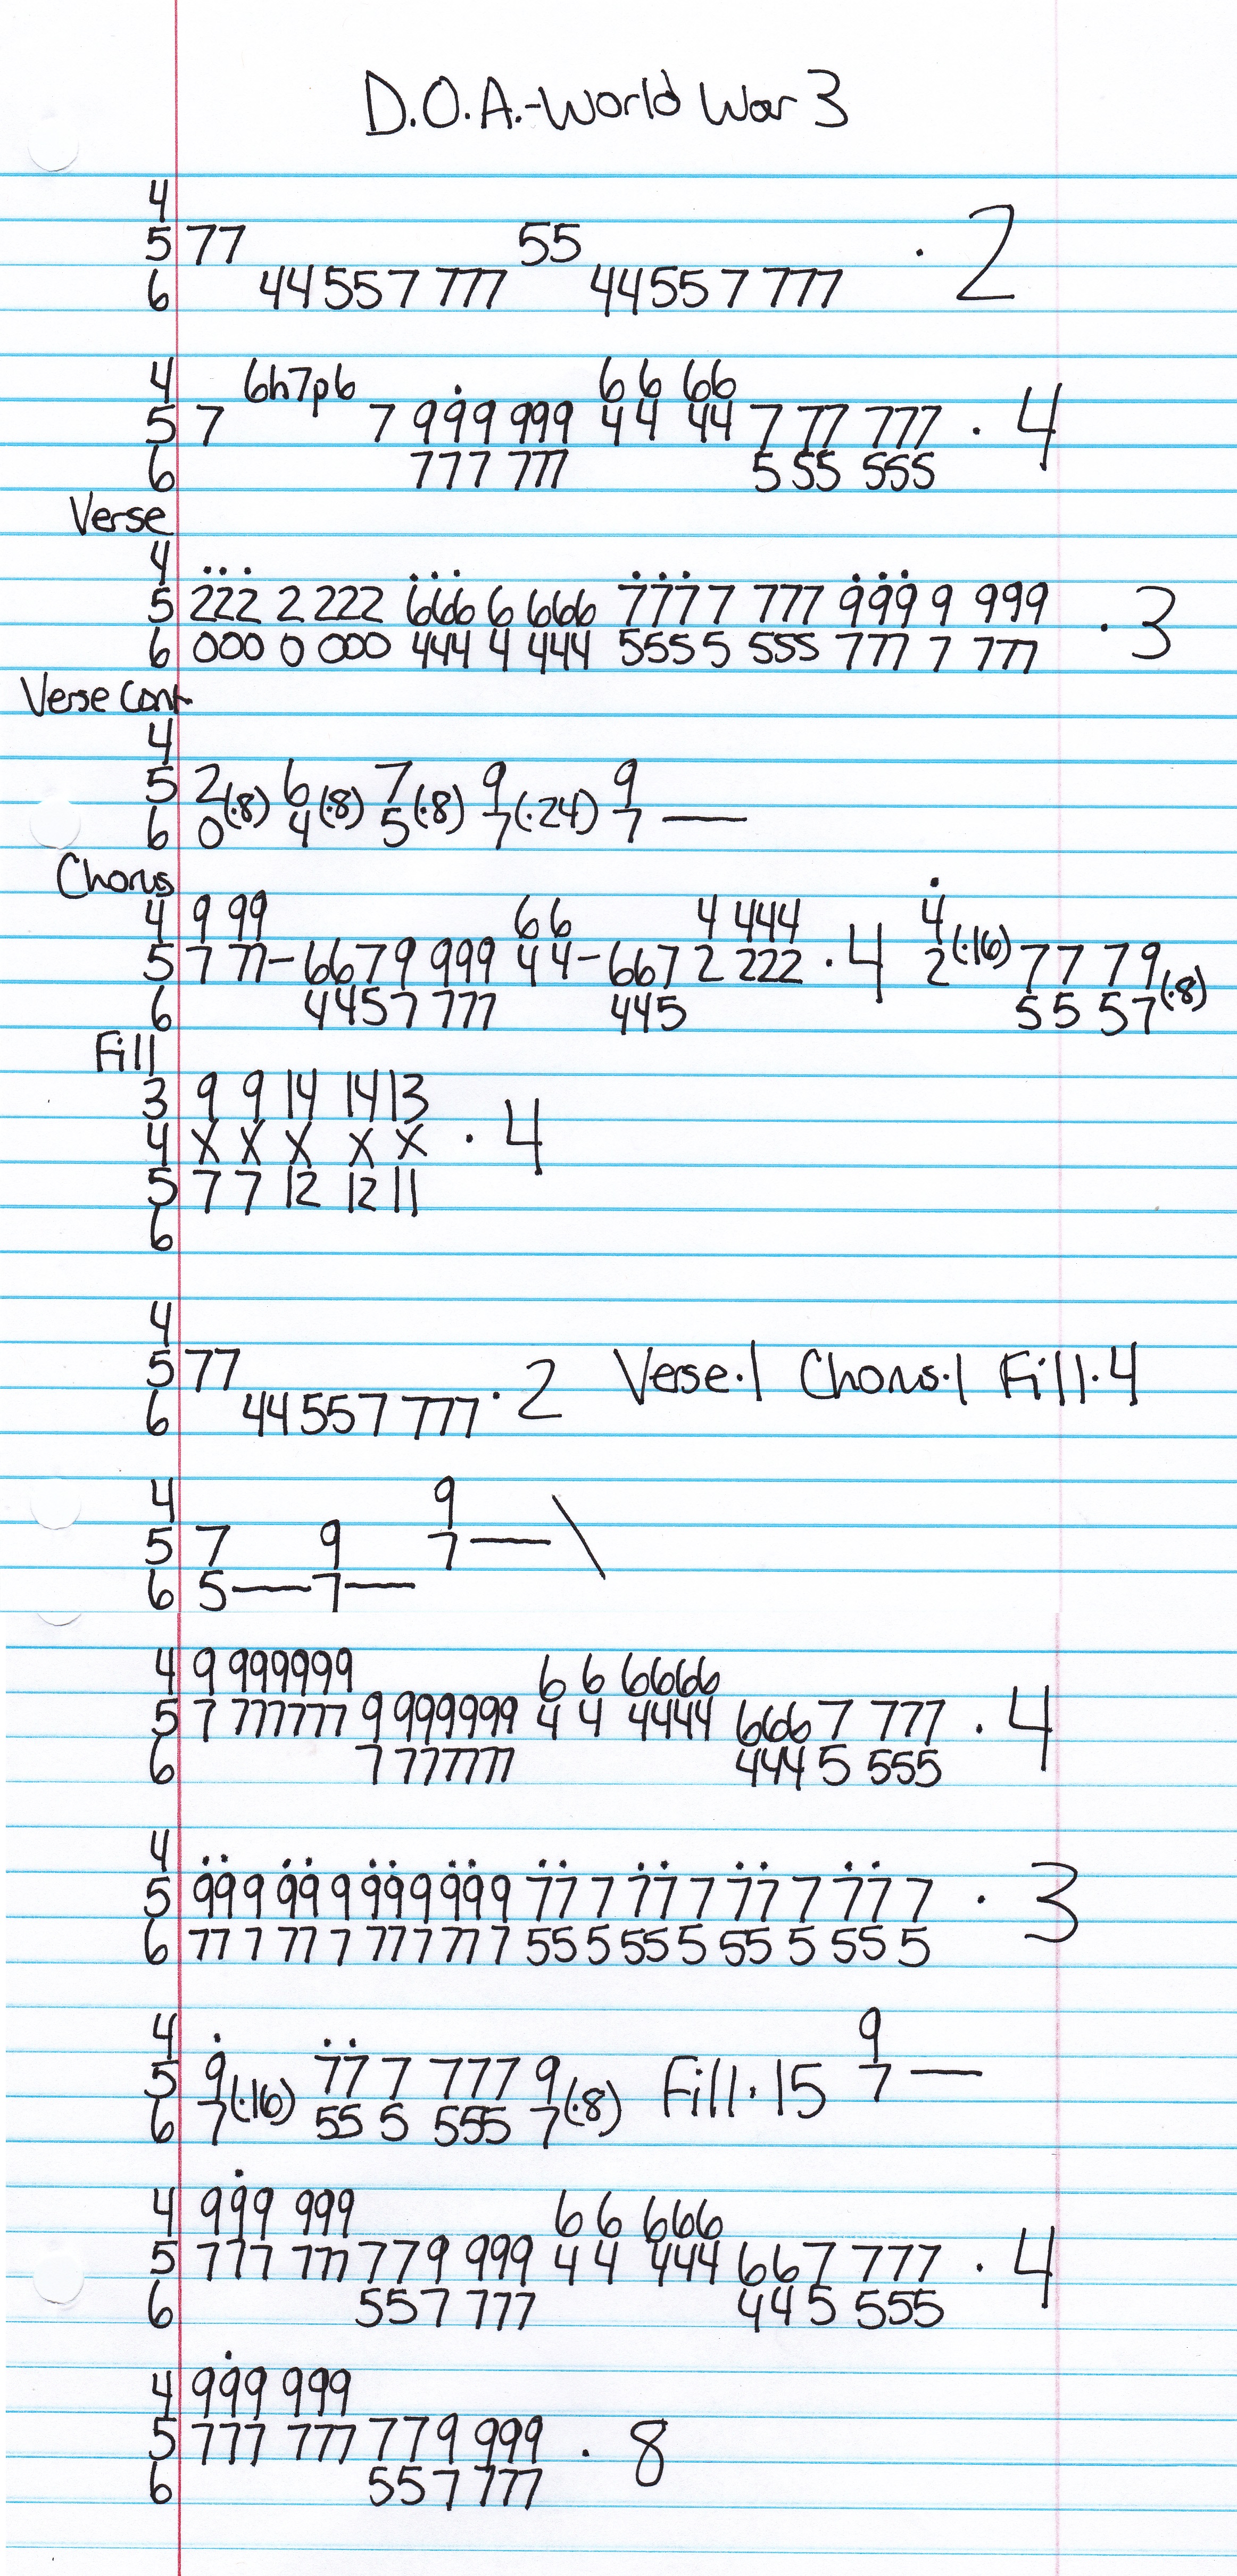 D.O.A.-World War 3
4
5 77 55 · 2
6 44 55 7 777 44 55 7 777
4 6h7p6 6 6 66
5 7 7 999 999 4 4 44 7 77 777 · 4
6 777 777 5 55 555
Verse
4
5 222 2 222 666 6 666 777 7 777 999 9 999 · 3
6 000 0 000 444 4 444 555 5 555 777 7 777
Verse Cont
4
5 2(·8) 6(·8) 7(·8) 9(·24) 9
6 0 4 5 7 7 —
Chorus
4 9 99 66 4 444 4
5 7 77-6679 999 44-667 2 222 · 4 2(·16) 77 79(·8)
6 4457 777 445 55 57
Fill
3 9 9 14 14 13
4 X X X X X · 4
5 7 7 12 12 11
6
4
5 77 · 2 Verse·1 Chorus·1 Fill·4
6 44 55 7 777
4 9
5 7 9 7 — \
6 5 — 7 —
4 9 999999 6 6 6666
5 7 777777 9 999999 4 4 4444 666 7 777 · 4
6 7 777777 444 5 555
4
5 99 9 99 9 99 9 99 9 77 7 77 7 77 7 77 7 · 3
6 77 7 77 7 77 7 77 7 55 5 55 5 55 5 55 5
4 9
5 9(·16) 77 7 777 9(·8) Fill·15 7 —
6 7 55 5 555 7
4 999 999 6 6 666
5 777 777 779 999 4 4 444 667 777 · 4
6 557 777 445 555
4 999 999
5 777 777 779 999 · 8
6 557 777